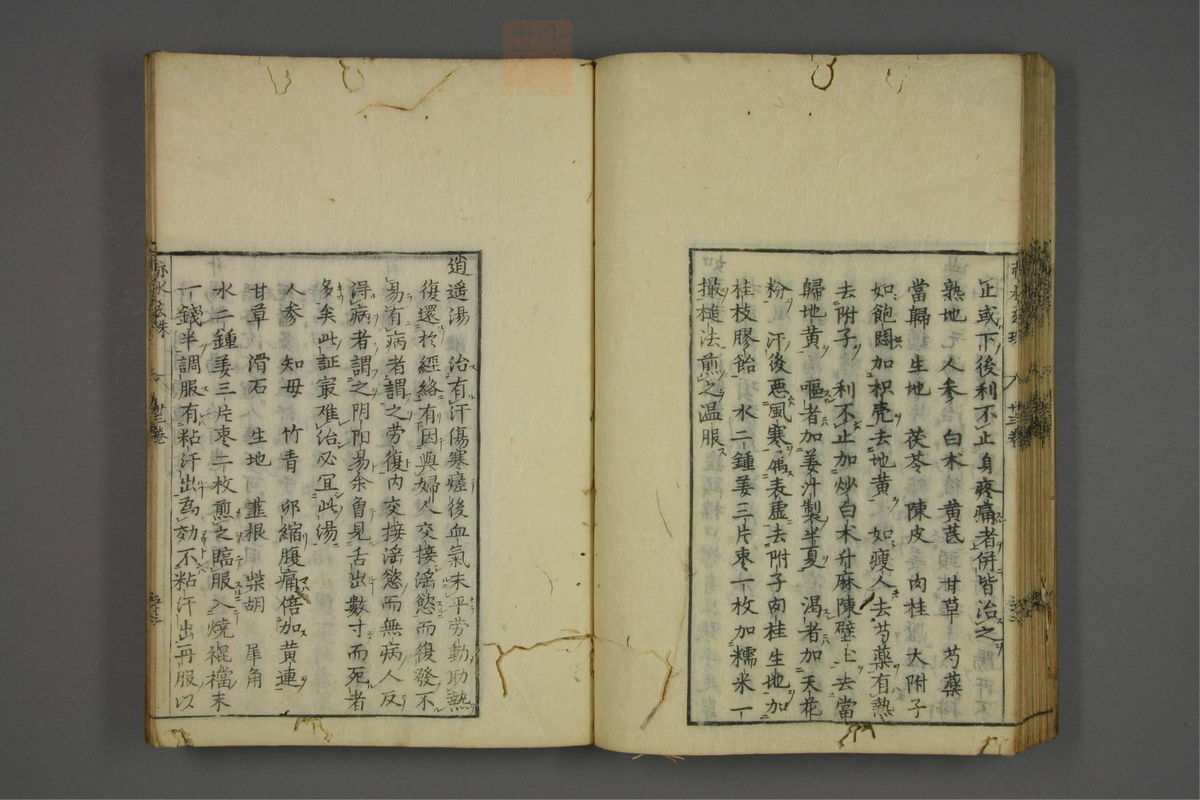 正或下後利不止身疼痛者併皆治之
熟地 人参 白朮 黄芪 甘草 芍藥
當歸 生地 茯苓 陳皮 肉桂 大附子
如飽悶加枳壳去地黄 如瘦人去芍藥有熱
去附子 利不止加炒白朮升麻陳壁土去當
歸地黄 嘔者加姜汁製半夏 渇者加天花
粉 汗後悪風寒属表虚去附子肉桂生地加
桂枝膠飴 水二鍾姜三片枣一枚加糯米一
撮槌法煎之温服
逍遥湯 治有汗傷寒瘥後血氣未平劳動助熱
復還於經絡有因與婦人交接淫慾而復發不
易有病者謂之劳復内交接淫慾而無病人反
得病者謂之阴阳易余曽見舌出數寸而死者
多矣此証寂难治必宜此湯
人参 知毋 竹青 卵縮腹痛倍加黄連
甘草 滑石 生地 韮根 柴胡 犀角
水二鍾姜三片枣二枚煎之臨服入燒裩襠末
一錢半調服有粘汗出為効不粘汗出再服以